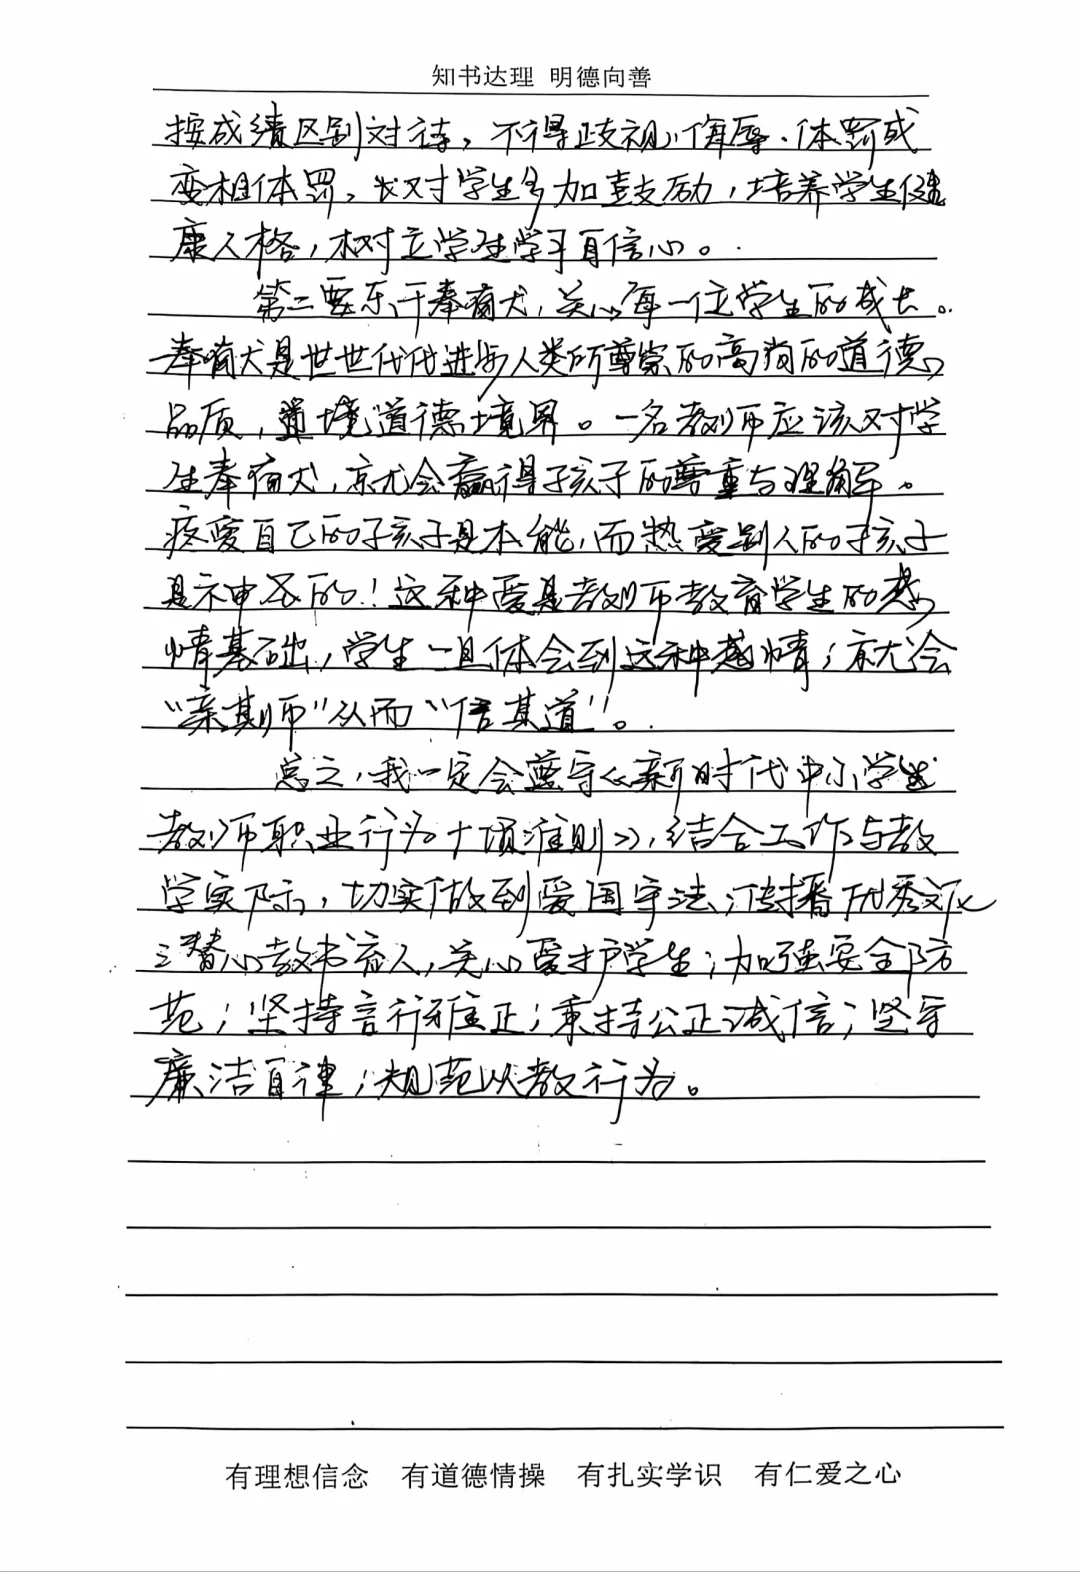 知书达理 明德向善
按成绩区别对待，不得歧视、侮辱、体罚或
变相体罚。对学生多加鼓励，培养学生健
康人格，树立学生学习自信心。
第二要乐于奉献，关心每一位学生的成长。
奉献是世世代代进步人类所尊崇的高尚的道德
品质，道境道德境界。一名教师应该对学
生奉献，就会赢得孩子的尊重与理解。
疼爱自己的孩子是本能，而热爱别人的孩子
是神圣的！这种爱是教师教育学生的感
情基础，学生一旦体会到这种感情；就会
“亲其师”从而“信其道”。
总之，我一定会遵守《新时代中小学生
教师职业行为十项准则》，结合工作与教
学实际，切实做到爱国守法；传播优秀文化
；潜心教书育人，关心爱护学生；加强安全防
范；坚持言行雅正；秉持公正诚信；坚守
廉洁自律；规范从教行为。
有理想信念 有道德情操 有扎实学识 有仁爱之心